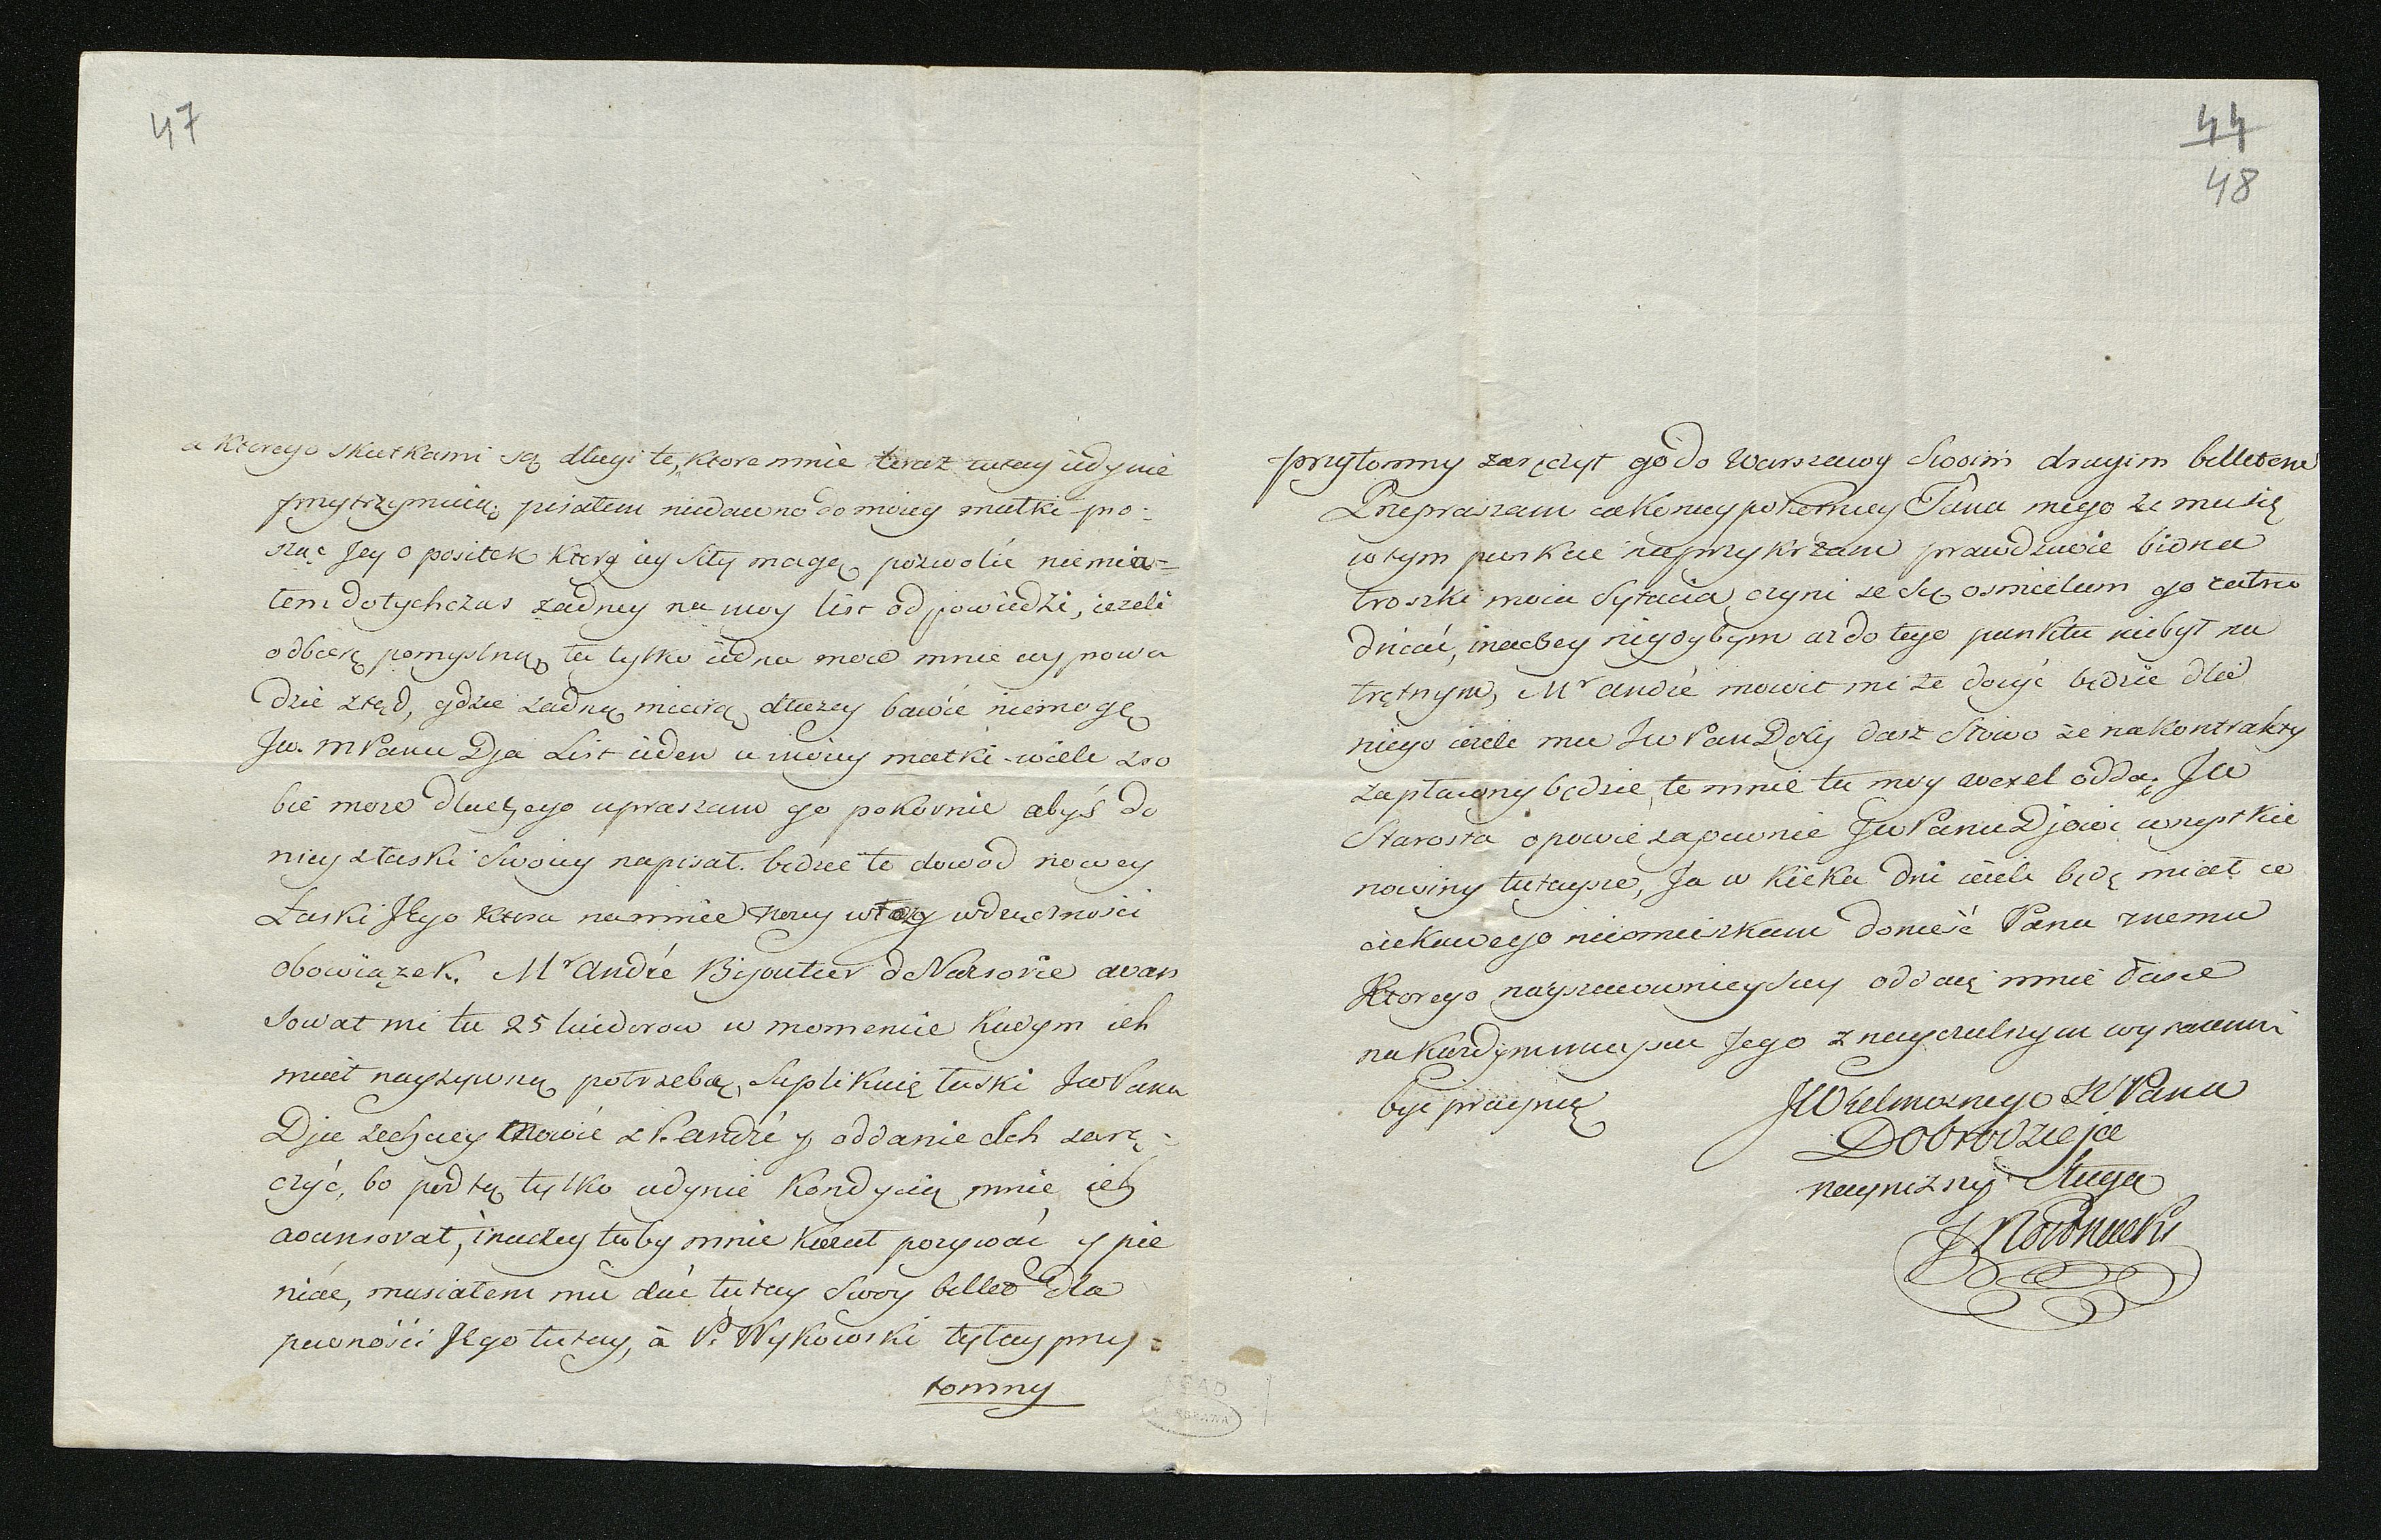 47
a ktorego skutkami są długi te, ktore mnie teraz tutay iedynie
przytrzymuią, pisałem niedawno do moiey matki pro-
sząc Jey o posiłek ktory iey siły mogą pozwolić niemia-
łem dotychczas żadney na moy list odpowiedzi, ieżeli
odbiorę pomyslną, ta tylko iedna może mnie wyprowa
dzić ztąd, gdzie żadną miarą dłużey bawić niemogę
Jw. m Pana Dja List ieden u moiey matki wiele zro
bić może dlaczego upraszam go pokornie abyś do
niey z łaski swoiey napisał. będzie to dowod nowey
Łaski Jego ktora na mnie nowy włoży wdzięczności
obowiązek. Mr André Bijoutier de Varsovie avan
sował mi tu 25 luidorow w momencie kiedym ich
miał nayżywszą potrzebę, Suplikuię łaski JwPana
Dja zechciey mowić z P. André y oddanie Ich zarę-
czyć, bo pod tą tylko iedynie kondycią mnie ich
avansował, inaczey tuby mnie kazał pozywać y pie
niać, musiałem mu dać tutay swoy billet dla
pewności Jego tutay, à P. Wykowski tutay przy-
tomny
44
48
przytomny zaręczył go do Warszawy swoim drugim billetem
Przepraszam iak naypokorniey Pana mego że musię
w tym punkcie naprzykrzam prawdziwie biedna
troszki moia sytuacia czyni że się osmielam go zatru
dniać, inaczey nigdybym aż do tego punktu niebył na
trętnym, Mr André mowił mi że dosyć będzie dla
niego ieżeli mu Jw Pan Doby dasz słowo że na kontrakty
zapłacony będzie, to mnie tu moy wexel oddą. Jw
Starosta opowie zapewnie JwPanu Djowi wszystkie
nowiny tuteysze, Ja w kilka dni ieżeli będę miał co
ciekawego nieomieszkam donieść Panu memu
ktorego nayszacownieyszey oddaię mnie łasce
na każdym mieyscu Jego z nayczulszym wyrazem
być pragnę
JWielmożnego WPana
Dobrodzieja
nayniższy sługa
ARAD
WARSZAWA